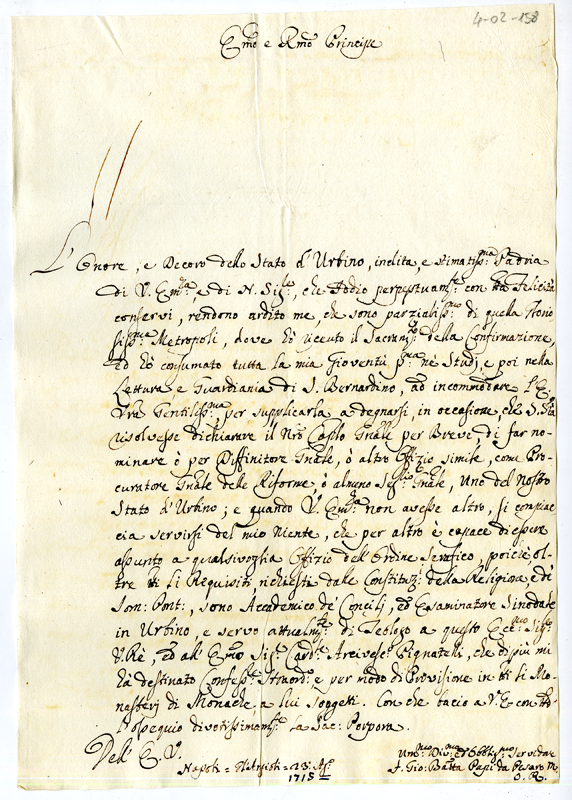 4-02-158
Emo e Rmo Principe
L'Onore, e Decoro dello Stato d'Urbino, inclita, e stimatissma Padria
di V. Emza e di N. Sigre, che Iddio perpetuamte con tta Felicità
conservi, rendono ardito me, che sono parzialissmo di quella
sissma Metropoli, dove hò riceuto il Sacramto della Confirmazione,
ed hò consumato tutta la mia Gioventù pma nè Studj, e poi nella
Lettura e Guardiania di S. Bernardino, ad incommodare l'E.
Vra Gentilissma per supplicarla a degnarsi in occasione, che S. Stà
risolvesse dichiarare il Nro Caplo Gnale per Breve, di far no-
minare ò per Diffinitore Gnale, ò altro Offizio simile, come Pro-
curatore Gnale delle Riforme ò almeno Segrio Gnale, Uno del Nostro
Stato d'Urbino; e quando V. Emza non avesse altro, si compiac
cia servirsi del mio Niente, che per altro è capace di essere
assunto a qualsivoglia Offizio dell'Ordine Serafico, poiciè, ol-
tre tti li Requisiti richiesti dalle Constituzi della Religione, e de
Som: Pont:, sono Accademico de Concilj, ed Esaminatore Sinodale
in Urbino, e servo attualmte di Teologo a questo Eccmo Sigr
V.Rè, ed all Emo Sigr Cardl Arcivesco Pignatelli, che di più mi
hà destinato Confessre Straordo e per modo di Provisione in tti li Mo-
nasterj di Monache a lui Soggetti. Con che bacio a V. E con tto
l'Ossequio divotissimamte La Sac: Porpora.
Dell' E. V.
Napoli = 13: =
1715
Umo Divmo ed Obblmo Servidre
F. Gio: Batta da Pesaro M.
O. R.